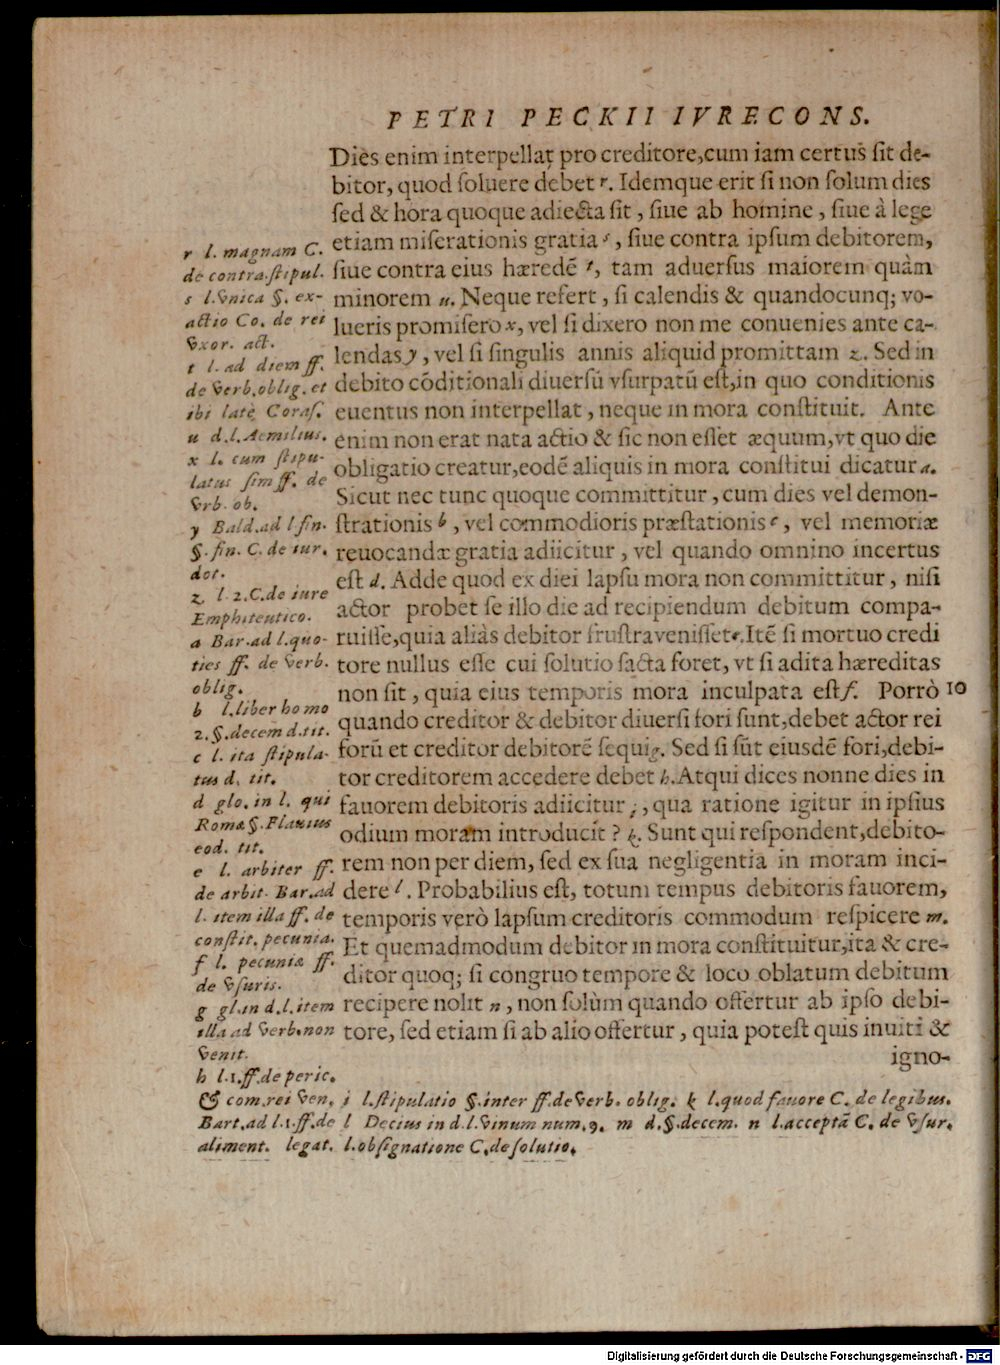 PETRI PECKII IVRECONS.
Dies enim interpellat pro creditore, cum iam certus sit de-
bitor, quod soluere debet r. Idemque erit si non solum dies
sed & hora quoque adiecta sit, siue ab homine, siue à lege
etiam miserationis gratia s, siue contra ipsum debitorem,
siue contra eius hæredē t, tam aduersus maiorem quàm
minorem u. Neque refert, si calendis & quandocunq; vo-
lueris promisero x, vel si dixero non me conuenies ante ca-
lendas y, vel si singulis annis aliquid promittam z. Sed in
debito cōditionali diuersū vsurpatū est, in quo conditionis
euentus non interpellat, neque in mora constituit. Ante
enim non erat nata actio & sic non esset æquum, vt quo die
obligatio creatur, eodē aliquis in mora constitui dicatur a.
Sicut nec tunc quoque committitur, cum dies vel demon-
strationis b, vel commodioris præstationis c, vel memoriæ
reuocandæ gratia adiicitur, vel quando omnino incertus
est d. Adde quod ex diei lapsu mora non committitur, nisi
actor probet se illo die ad recipiendum debitum compa-
ruisse, quia aliàs debitor frustra venisset e. Itē si mortuo credi
tore nullus esse cui solutio facta foret, vt si adita hæreditas
non sit, quia eius temporis mora inculpata est f. Porrò 10
quando creditor & debitor diuersi fori sunt, debet actor rei
forū et creditor debitorē sequi g. Sed si sūt eiusdē fori, debi-
tor creditorem accedere debet h. Atqui dices nonne dies in
fauorem debitoris adiicitur i, qua ratione igitur in ipsius
odium moram introducit? k. Sunt qui respondent, debito-
rem non per diem, sed ex sua negligentia in moram inci-
dere l. Probabilius est, totum tempus debitoris fauorem,
temporis verò lapsum creditoris commodum respicere m.
Et quemadmodum debitor in mora constituitur, ita & cre-
ditor quoq; si congruo tempore & loco oblatum debitum
recipere nolit n, non solùm quando offertur ab ipso debi-
tore, sed etiam si ab alio offertur, quia potest quis inuiti &
igno-
r l. magnam C.
de contra. stipul.
s l. vnica §. ex-
actio Co. de rei
vxor. act.
t l. ad diem ff.
de verb. oblig. et
ibi latè Coras.
u d. l. Aemilius.
x l. cum stipu-
latus sim ff. de
vrb. ob.
y Bald. ad l fin.
§. fin. C. de iur.
dot.
z l. 2. C. de iure
Emphiteutico.
a Bar. ad l. quo-
ties ff. de verb.
oblig.
b l. liber homo
2. §. decem d. tit.
c l. ita stipula-
tus d. tit.
d glo. in l. qui
Romæ §. Flauius
eod. tit.
e l. arbiter ff.
de arbit. Bar. ad
l. item illa ff. de
constit. pecunia.
f l. pecuniæ ff.
de vsuris.
g gl. in d. l. item
illa ad verb. non
venit.
h l. 1. ff. de peric.
& com. rei ven. i l. stipulatio §. inter ff. de verb. oblig. k l. quod fauore C. de legibus.
Bart. ad l. 1. ff. de l Decius in d. l. vinum num. 9. m d. §. decem. n l. acceptā C. de vsur.
aliment. legat. l. obsignatione C. de solutio.
Digitalisierung gefördert durch die Deutsche Forschungsgemeinschaft - DFG